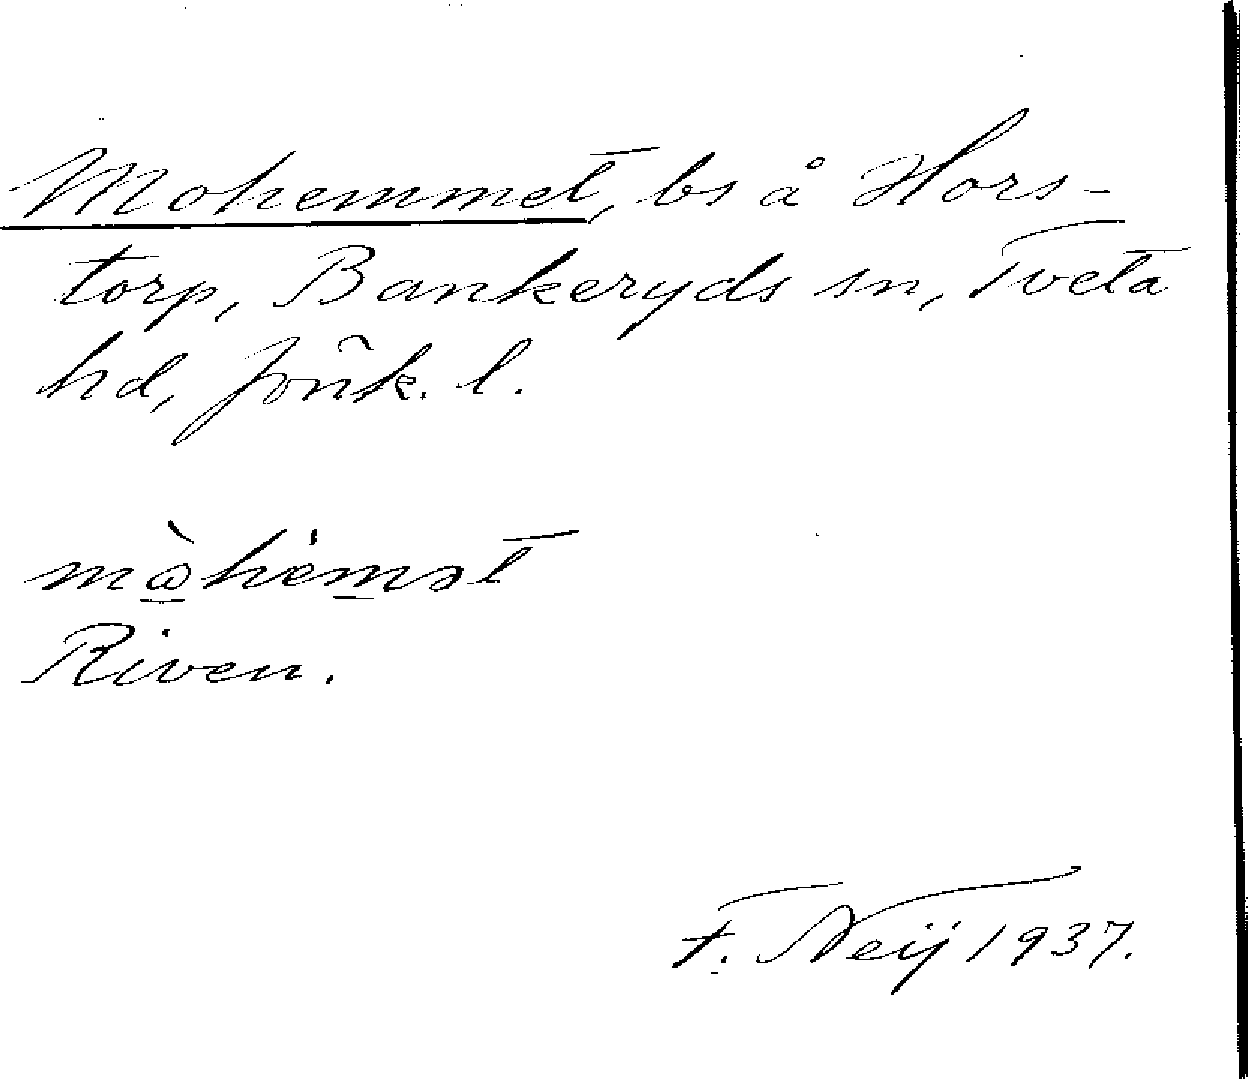 Mohemmet, bs å Hors-
torp, Bankeryds sn, Tveta
hd, Jönk. l.
mὼhemət
Riven.
F. Neij 1937.